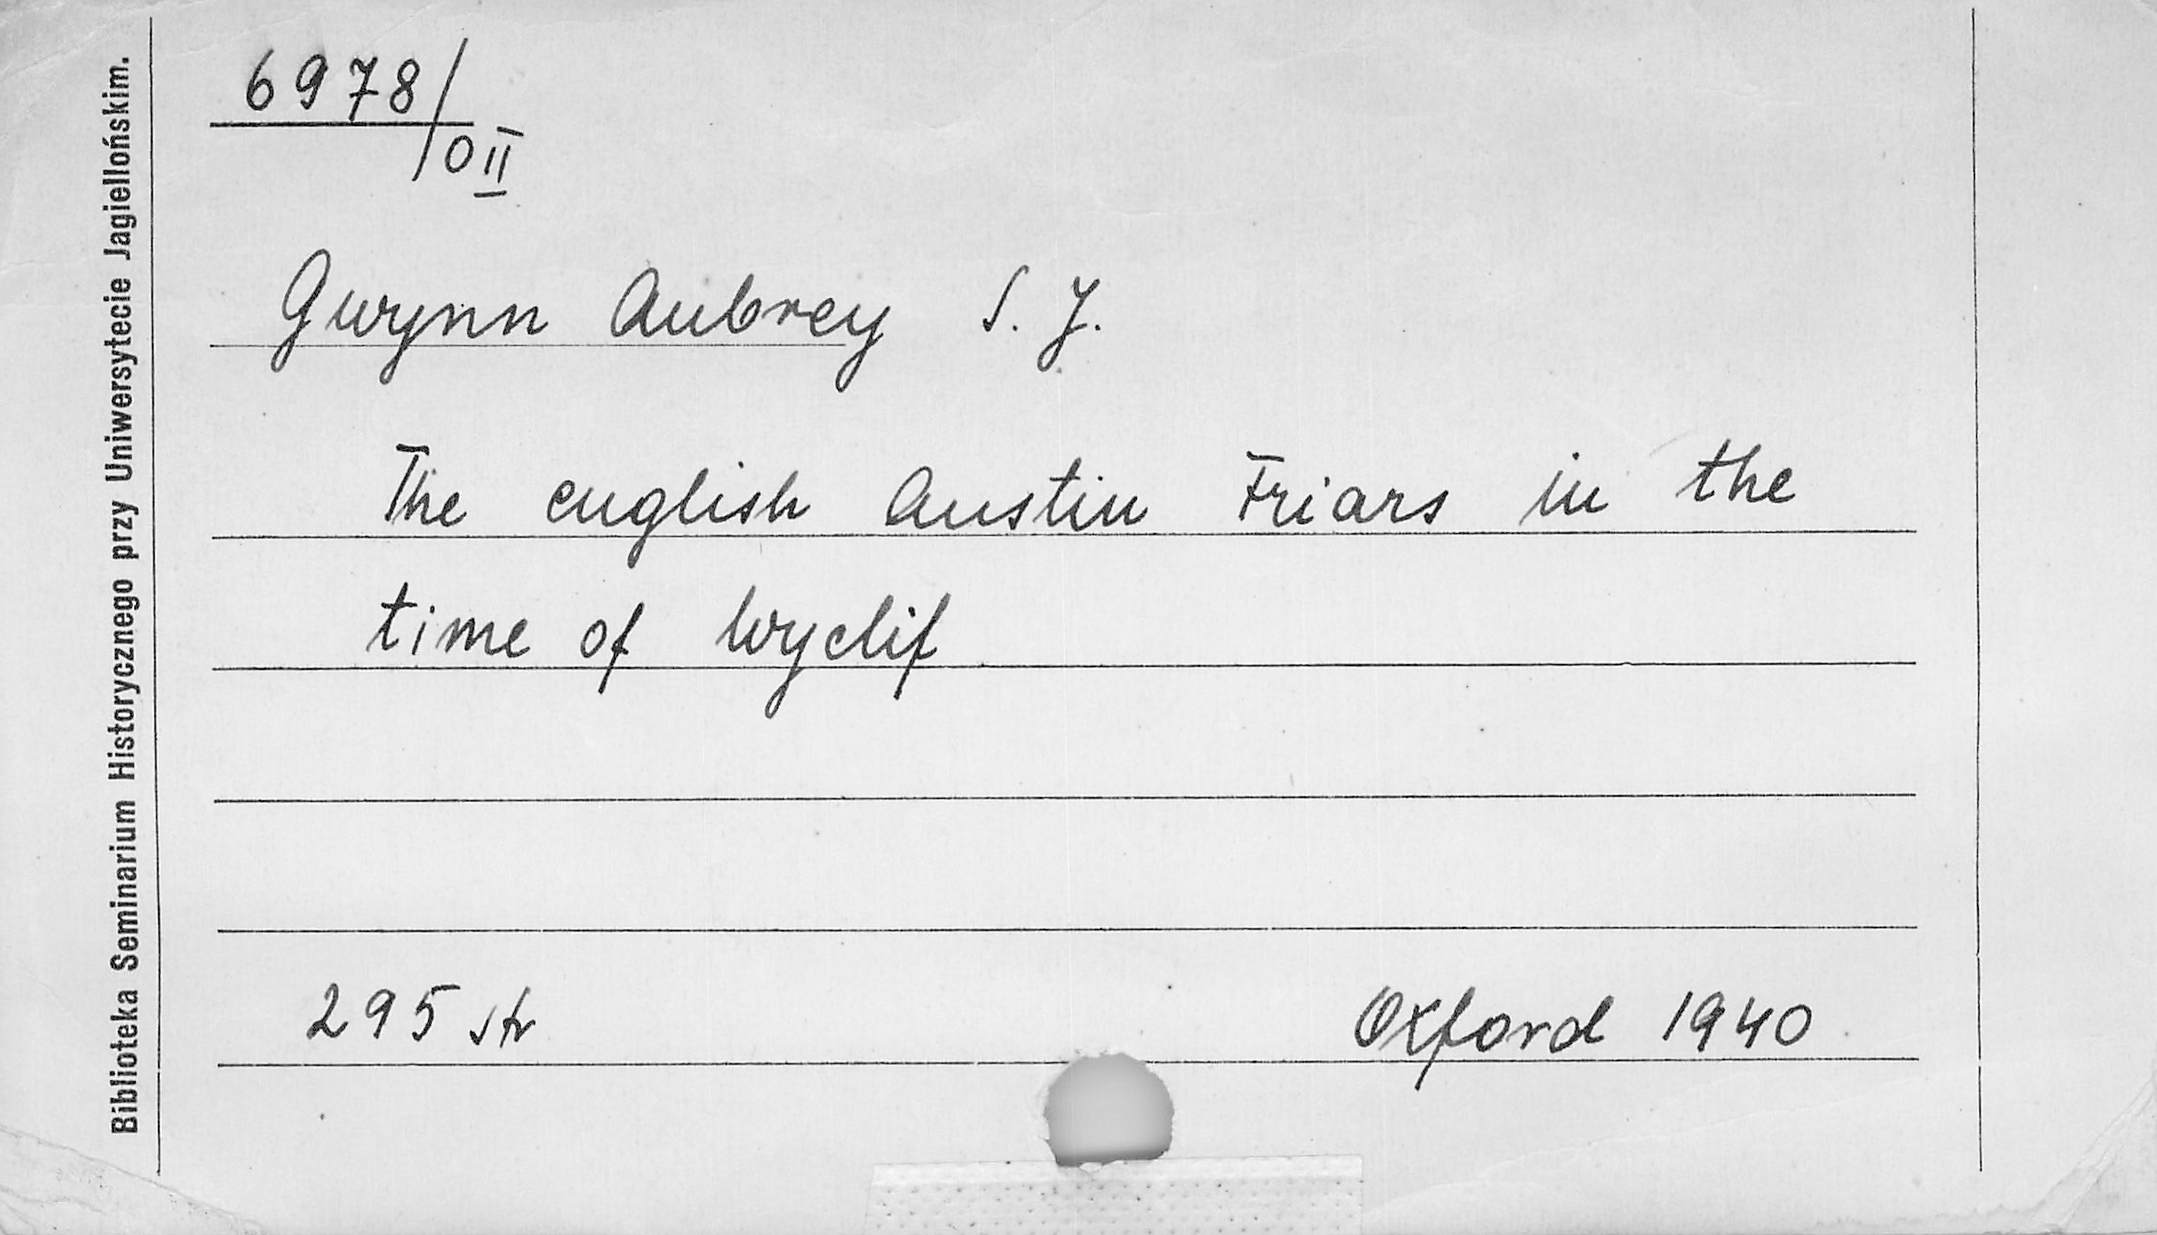 Biblioteka Seminarium Historycznego przy Uniwersytecie Jagiellońskim.
6978/
OII
Gwynn Aubrey S. J.
The english Austin Friars in the
time of Wyclif
295 str
Oxford 1940